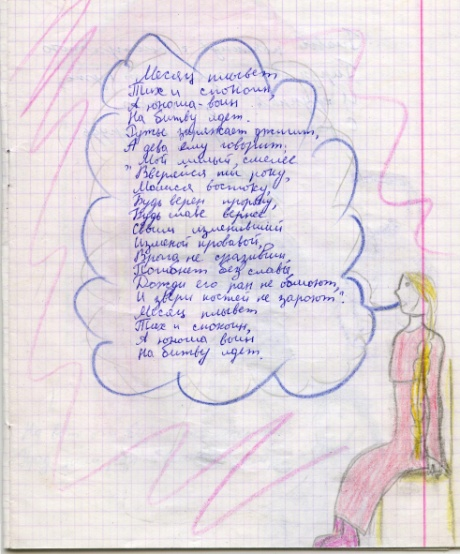 Месяц плывет
Тих и спокоин,
А юноша-воин
На битву идет.
Ружье заряжает джигит,
А дева ему говорит.
"Мой милый, смелее
Вверяйся ты року,
Молися востоку,
Будь верен пророку,
Будь славе вернее
Своим изменивший
Изменой кровавой,
Врага не сразивши,
Погибнет без славы,
Дожди его ран не обмоют,
И звери костей не зароют".
Месяц плывет
Тих и спокоин,
А юноша воин
На битву идет.